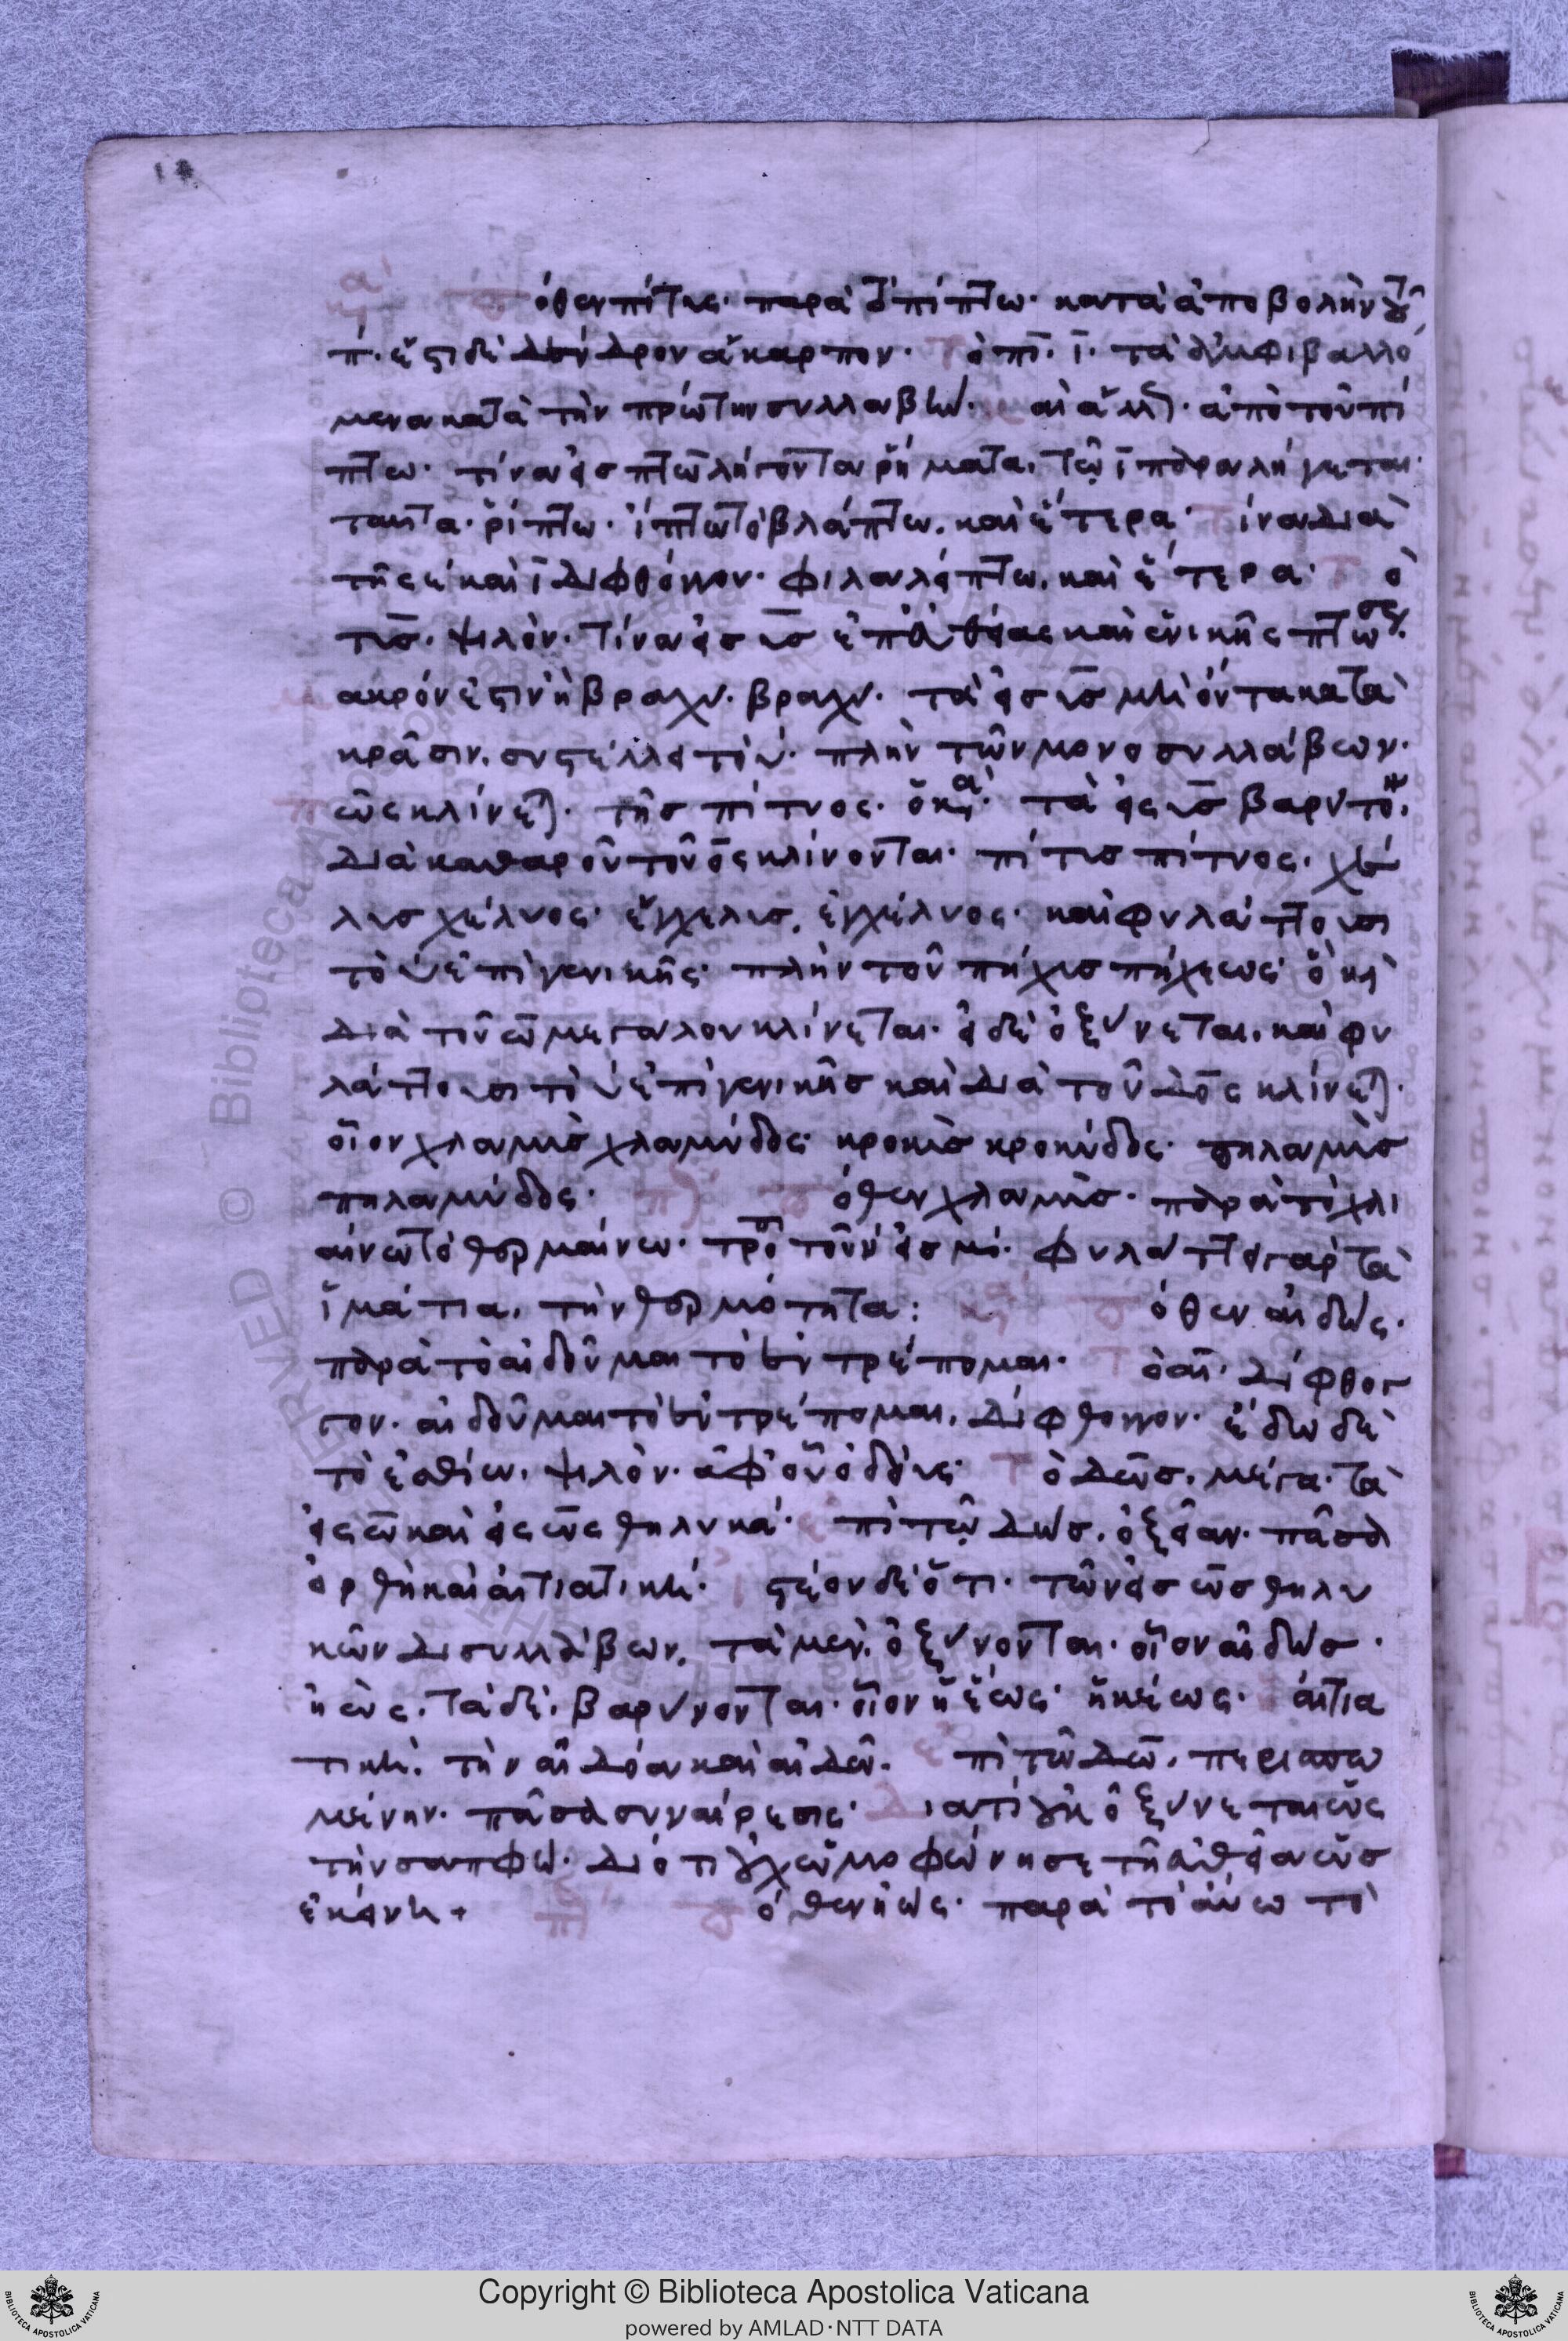 ὅθεν πίτυς· παρὰ τὸ πίπτω· κατὰ ἀποβολὴν τοῦ
π· ἔστι δὲ δένδρον ἄκαρπον· Τ ὁ πῑ· ῑ· τὰ ἀμφιβαλλό
μενα κατὰ τὴν πρώτην συλλαβὴν· ἀπὸ τοῦ πί
πτω· τίνα εἰς πτω λήγονται ρήματα, τῶ ῑ παραλήγεται·
ταῦτα· ρίπτω· ἵπτω τὸ βλάπτω, καὶ ἕτερα· Τίνα διὰ
τῆς ει καὶ ῑ διφθόγγου· φίλαλείπτω, καὶ ἕτερα· Τ ὁ
τυς· ψιλόν· τίνα εἰς υς ἐπ' εὐθείας καὶ ἑνικῆς πτώσεως
μακρόν ἐστιν ἢ βραχύ· βραχύ· τὰ εἰς υς μὴ ὄντα κατὰ
κρᾶσιν, συστέλλει τὸ υ· πλὴν τῶν μονοσυλλάβων·
πῶς κλίνεται· τῆς πίτυος· ὁ κανών· τὰ εἰς υς βαρύτονα,
διὰ καθαροῦ τοῦ ος κλίνονται· πίτυς πίτυος· χέ
λυς χέλυος· ἔγχελυς, ἐγχέλυος· καὶ φυλάττουσι
τὸ υ ἐπὶ γενικῆς· πλὴν τοῦ πῆχυς πήχεως· ὅ καὶ
διὰ τοῦ ω μεγάλου κλίνεται· εἰ δὲ ὀξύνεται, καὶ φυ
λάττουσι τὸ υ ἐπὶ γενικῆς καὶ διὰ τοῦ δος κλίνεται·
οἷον χλαμὺς χλαμύδος· κροκὺς κροκύδος· πηλαμὺς
πηλαμύδος· ὅθεν χλαμύς· παρὰ τὸ χλι
αίνω τὸ θερμαίνω· τροπῆ τοῦ ν εἰς μ· φυλάττει γὰρ τὰ
ἱμάτια, τὴν θερμότητα: ὅθεν αἰδώς·
παρὰ τὸ αἰδοῦμαι τὸ ἐντρέπομαι· Τ ὁ αι· δίφθογ
γον· αἰδοῦμαι τὸ ἐντρέπομαι, δίφθογγον· ἔδω δὲ
τὸ ἐσθίω, ψιλόν· ἀφ' οὗ ὀδούς· Τ ὁ δως, μέγα· τὰ
εἰς ω καὶ εἰς ως θηλυκά· ἐπὶ τῶ δως, ὀξεῖαν· πᾶσα
ὀρθὴ καὶ αἰτιατική· ἰστέον δὲ ὅτι· τῶν εἰς ως θηλυ
κῶν δισυλλάβων, τὰ μὲν, ὀξύνονται· οἷον αἰδώς·
ἠώς· τὰ δὲ, βαρύνονται· οἷον ἡ ἕως· ἡ κέως· αἰτια
τική, τὴν αἰδόα καὶ αἰδῶ· ἐπὶ τῶ δω, περισπω
μένην· πᾶσα συναίρεσις· Διατί γοῦν ὀξύνεται ὡς
τὴν σαπφώ· διότι οὐχ ὡμοφώνησε τῆ εὐθεία ὡς
ἐκείνη + ὅθεν ἠώς· παρὰ τὸ αὔω τὸ
Copyright © Biblioteca Apostolica Vaticana
powered by AMLAD·NTT DATA